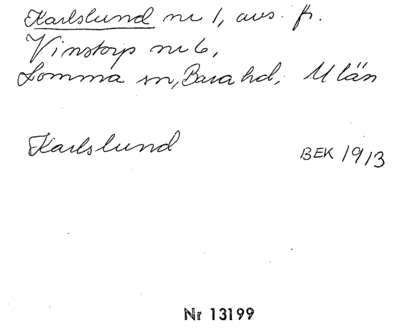 Karlslund nr 1, avs. fr.
Vinstorp nr 6,
Lomma sn, Bara hd, M län
Karlslund
BEK 1913
Nr 13199